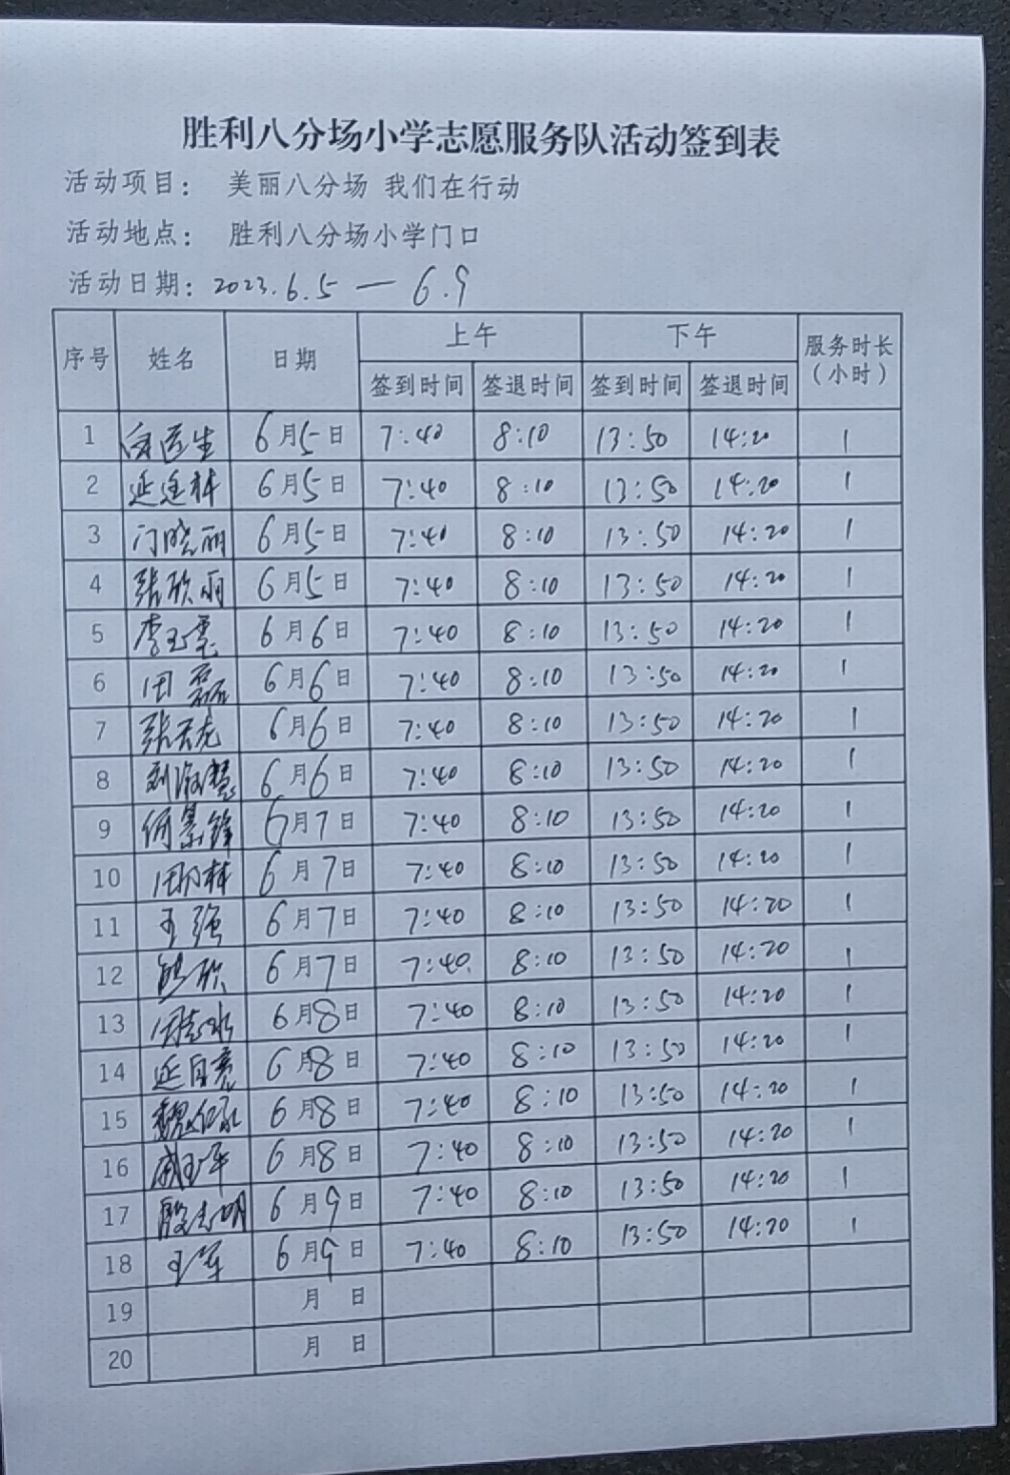 胜利八分场小学志愿服务队活动签到表
活动项目： 美丽八分场 我们在行动
活动地点： 胜利八分场小学门口
活动日期：2023.6.5 — 6.9
序号 姓名 日期 上午 下午 服务时长（小时）
签到时间 签退时间 签到时间 签退时间
1 6月5日 7:40 8:10 13:50 14:20 1
2 延廷林 6月5日 7:40 8:10 13:50 14:20 1
3 门晓丽 6月5日 7:40 8:10 13:50 14:20 1
4 张欣雨 6月5日 7:40 8:10 13:50 14:20 1
5 李玉 6月6日 7:40 8:10 13:50 14:20 1
6 田磊 6月6日 7:40 8:10 13:50 14:20 1
7 张天龙 6月6日 7:40 8:10 13:50 14:20 1
8 刘淑慧 6月6日 7:40 8:10 13:50 14:20 1
9 何景锋 6月7日 7:40 8:10 13:50 14:20 1
10 6月7日 7:40 8:10 13:50 14:20 1
11 王强 6月7日 7:40 8:10 13:50 14:20 1
12 6月7日 7:40 8:10 13:50 14:20 1
13 6月8日 7:40 8:10 13:50 14:20 1
14 延自亮 6月8日 7:40 8:10 13:50 14:20 1
15 魏 6月8日 7:40 8:10 13:50 14:20 1
16 6月8日 7:40 8:10 13:50 14:20 1
17 殷志明 6月9日 7:40 8:10 13:50 14:20 1
18 王军 6月9日 7:40 8:10 13:50 14:20 1
19 月 日
20 月 日